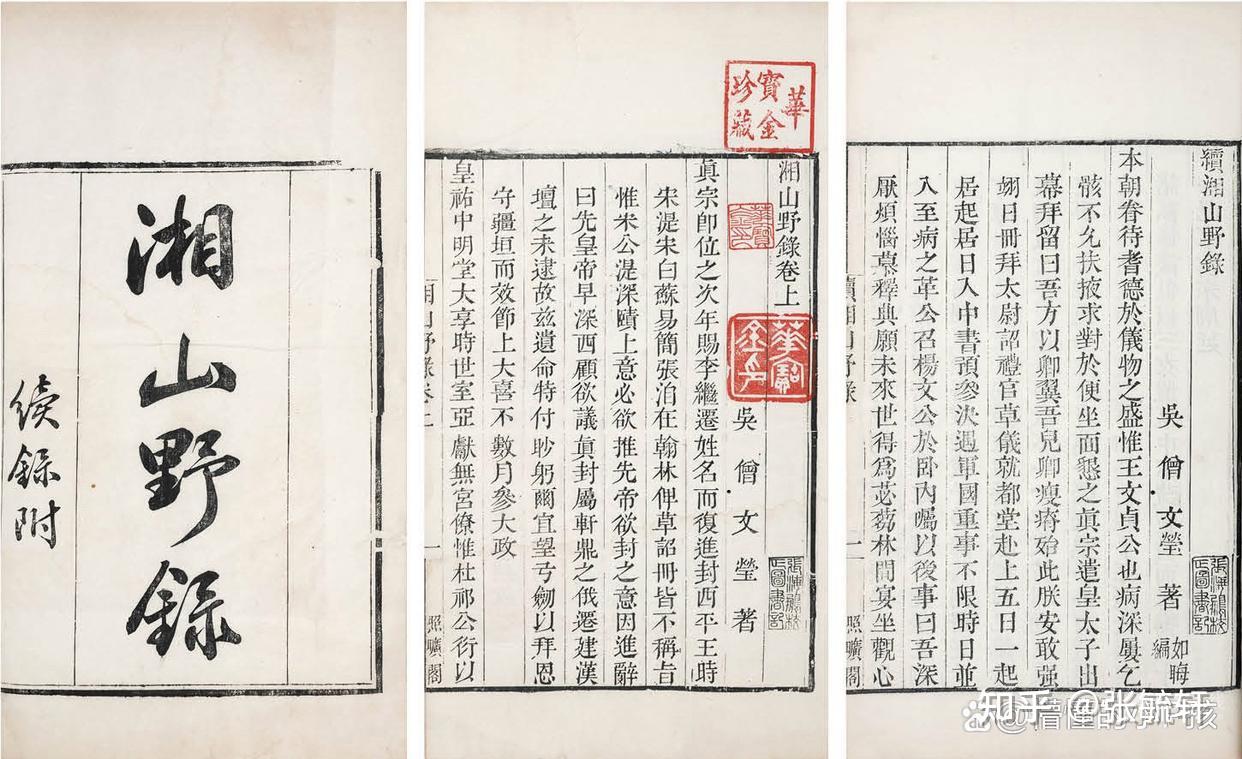 湘山野錄
續錄附
華寶金珍藏
湘山野錄卷上
華寶金印
吳僧文瑩著
眞宗卽位之次年賜李繼遷姓名而復進封西平王時
宋湜宋白蘇易簡張洎在翰林俾草詔冊皆不稱旨
惟宋公湜深賾上意必欲推先帝欲封之意因進辭
曰先皇帝早深西顧欲議眞封屬軒鼎之俄遷建漢
壇之未逮故茲遺命特付眇躬爾宜望弓劒以拜恩
守疆垣而效節上大喜不數月參大政
皇祐中明堂大享時世室亞獻無宮僚惟杜祁公衍以
一
照曠閣
續湘山野錄
吳僧文瑩著
如晦編
本朝眷待耆德於儀物之盛惟王文貞公也病深屢乞
骸不允扶掖求對於便坐面懇之眞宗遣皇太子出
幕拜留曰吾方以卿翼吾兒卿瘦瘠殆此朕安敢强
翊日冊拜太尉詔禮官草儀就都堂赴上五日一起
居起居日入中書預參決遇軍國重事不限時日並
入至病之革公召楊文公於臥內囑以後事曰吾深
厭煩惱慕釋典願未來世得爲苾蒭林間宴坐觀心
一
照曠閣
知乎 @张毓轩